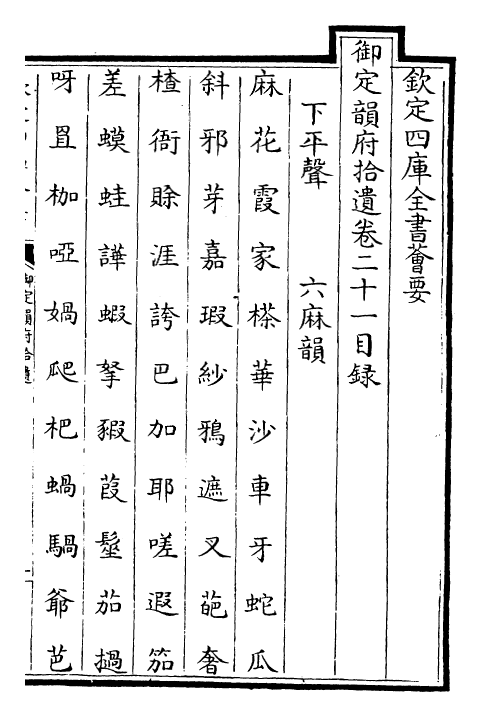 欽定四庫全書薈要
御定韻府拾遺卷二十一目録
下平聲　六麻韻
麻花霞家𣘻華沙車牙蛇瓜
斜邪芽嘉瑕紗鴉遮叉葩奢
楂衙賖涯誇巴加耶嗟遐笳
差蟆蛙譁蝦拏豭葭髽茄撾
呀罝枷啞媧爬杷蝸騧爺芭
御定韻府拾遺